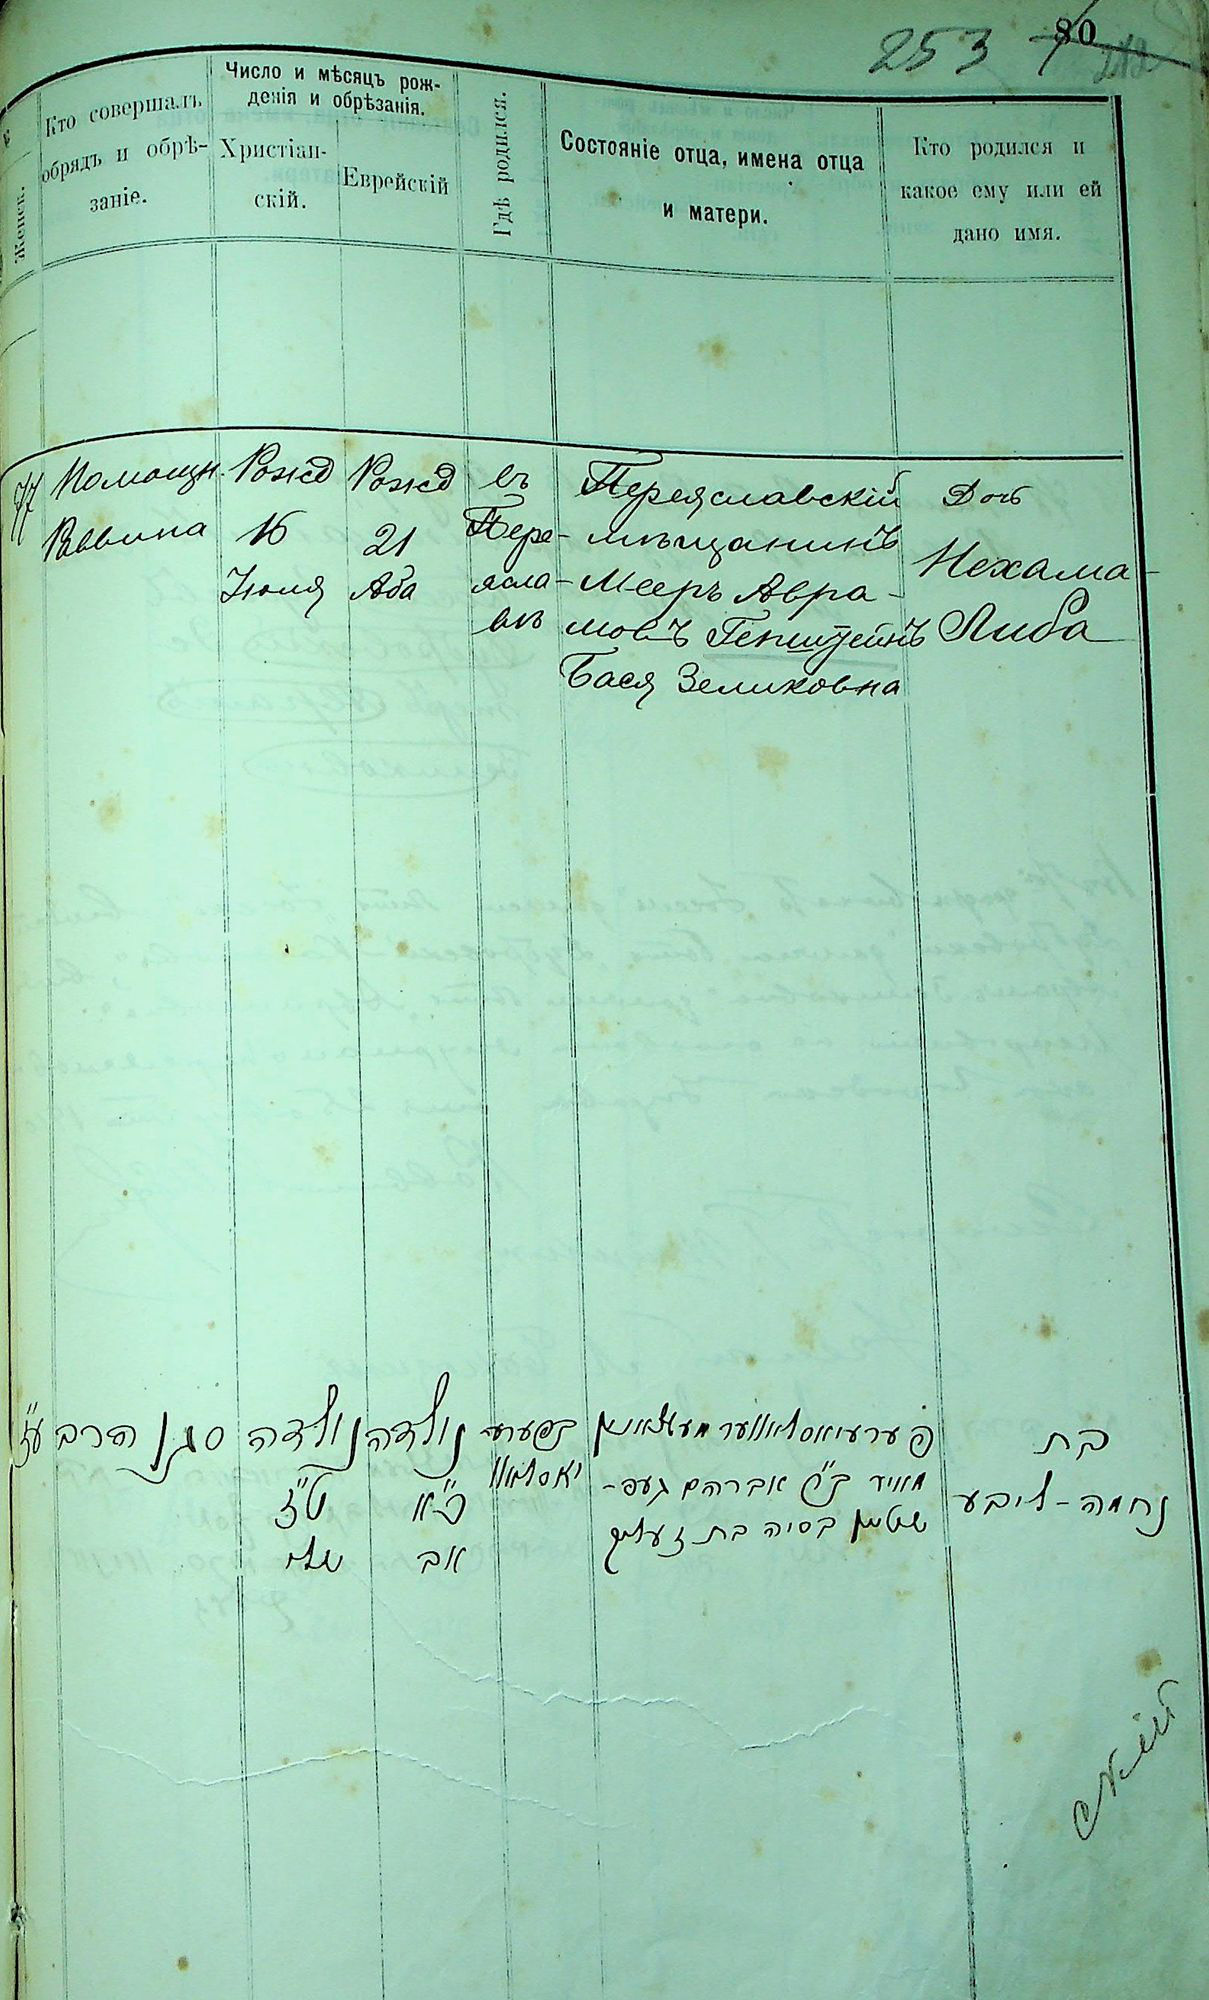 253
80
Женск.
Кто совершалъ
обрядъ и обрѣ-
заніе.
Число и мѣсяцъ рож-
денія и обрѣзанія.
Христіан-
скій.
Еврейскій
Гдѣ родился.
Состояніе отца, имена отца
и матери.
Кто родился и
какое ему или ей
дано имя.
77
Помощн.
Раввина
Рожд
16
Іюля
Рожд
21
Аба
въ
Пере-
ясла-
вѣ
Переяславскій
мѣщанинъ
Мееръ Авра-
мовъ Генштейнъ
Бася Зеликовна
Дочь
Нехама-
Либа
ע״ז
סגן הרב
נולדה
ט״ז
יולי
נולדה
כ״א
אב
בפערע-
יאסלאוו
פערעיאסלאווער מעשצאנין
מאיר ב״ר אברהם גענ-
שטיין בסיה בת זעליג
בת
נחמה-ליבע